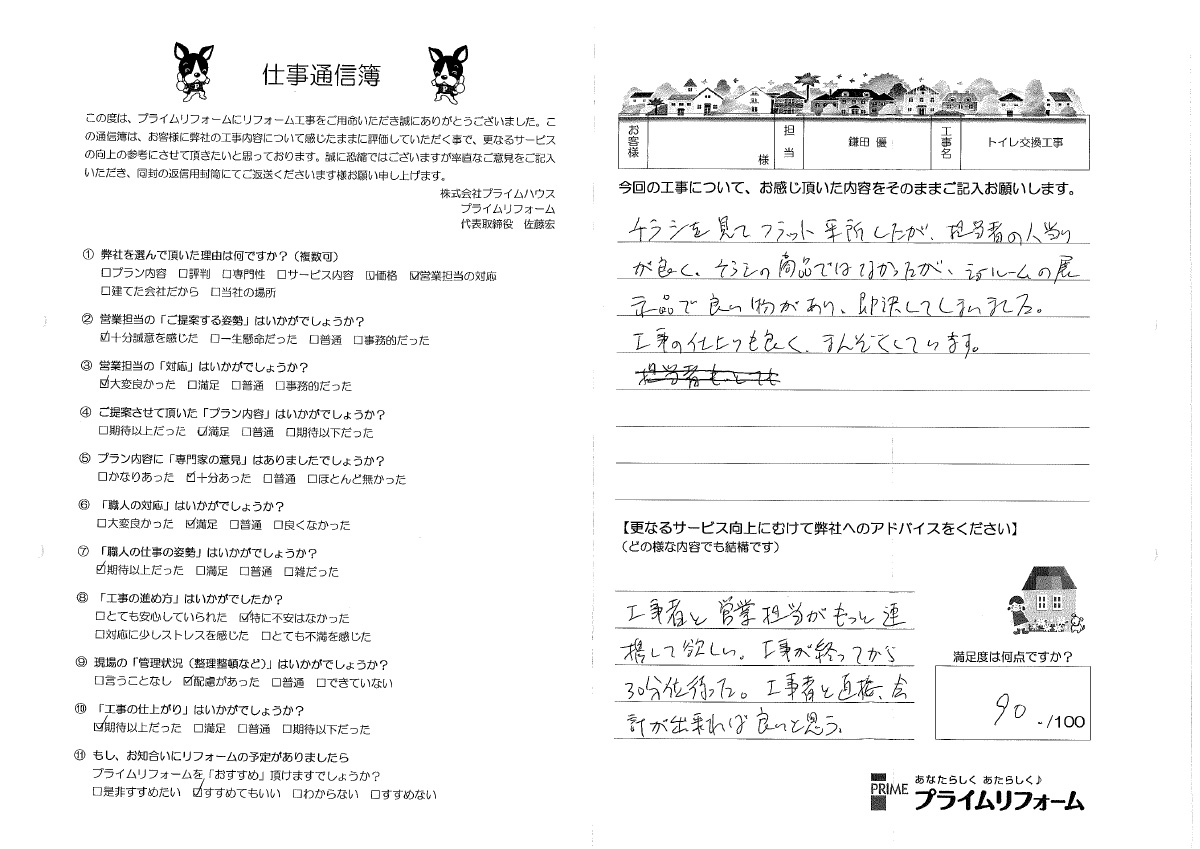 仕事通信簿
この度は、プライムリフォームにリフォーム工事をご用命いただき誠にありがとうございました。こ
の通信簿は、お客様に弊社の工事内容について感じたままに評価していただく事で、更なるサービス
の向上の参考にさせて頂きたいと思っております。誠に恐縮ではございますが率直なご意見をご記入
いただき、同封の返信用封筒にてご返送くださいます様お願い申し上げます。
株式会社プライムハウス
プライムリフォーム
代表取締役 佐藤宏
① 弊社を選んで頂いた理由は何ですか?(複数可)
□プラン内容 □評判 □専門性 □サービス内容 ☑価格 ☑営業担当の対応
□建てた会社だから □当社の場所
② 営業担当の「ご提案する姿勢」はいかがでしょうか?
☑十分誠意を感じた □一生懸命だった □普通 □事務的だった
③ 営業担当の「対応」はいかがでしょうか?
☑大変良かった □満足 □普通 □事務的だった
④ ご提案させて頂いた「プラン内容」はいかがでしょうか?
□期待以上だった ☑満足 □普通 □期待以下だった
⑤ プラン内容に「専門家の意見」はありましたでしょうか?
□かなりあった ☑十分あった □普通 □ほとんど無かった
⑥ 「職人の対応」はいかがでしょうか?
□大変良かった ☑満足 □普通 □良くなかった
⑦ 「職人の仕事の姿勢」はいかがでしょうか?
☑期待以上だった □満足 □普通 □雑だった
⑧ 「工事の進め方」はいかがでしたか?
□とても安心していられた ☑特に不安はなかった
□対応に少しストレスを感じた □とても不満を感じた
⑨ 現場の「管理状況(整理整頓など)」はいかがでしょうか?
□言うことなし ☑配慮があった □普通 □できていない
⑩ 「工事の仕上がり」はいかがでしょうか?
☑期待以上だった □満足 □普通 □期待以下だった
⑪ もし、お知合いにリフォームの予定がありましたら
プライムリフォームを「おすすめ」頂けますでしょうか?
□是非すすめたい ☑すすめてもいい □わからない □すすめない
お客様 様 担当 鎌田 優 工事名 トイレ交換工事
今回の工事について、お感じ頂いた内容をそのままご記入お願いします。
チラシを見てフラット来所したが、担当者の人当り
が良く、チラシの商品ではなかったが、ショールームの展
示品で良い物があり、即決してしまいました。
工事の仕上りも良く、まんぞくしています。
担当者もとても
【更なるサービス向上にむけて弊社へのアドバイスをください】
(どの様な内容でも結構です)
工事者と営業担当がもっと連
携して欲しい。工事が終ってから
30分位待った。工事者と直接、会
計が出来れば良いと思う。
満足度は何点ですか?
90 -/100
PRIME
あなたらしく あたらしく♪
プライムリフォーム